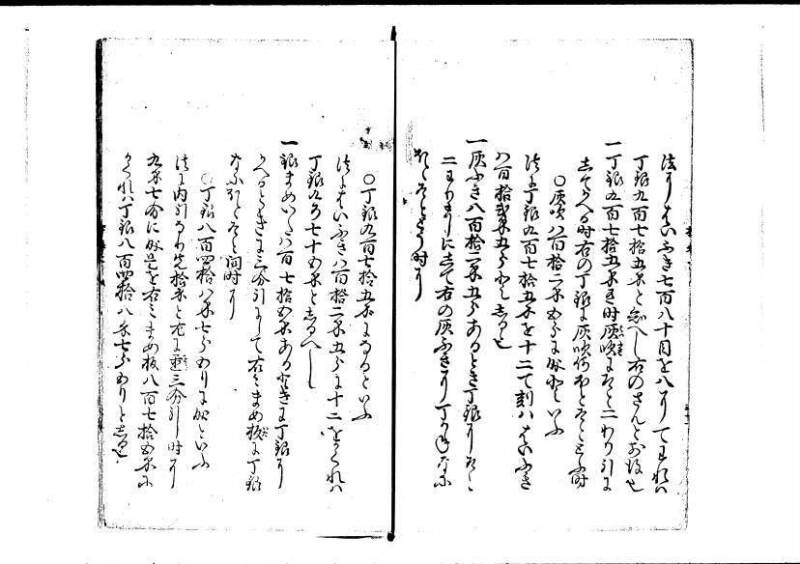 法にはいふき七百八十目を八にてわれハ
丁銀九百七拾五匁と知へし右のさんとおなし也
一丁銀九百七拾五匁有時灰吹にすると二わり引に
して 時右の丁銀に灰吹何ほとそととふ時
〇灰吹八百拾二匁五分に成といふ
法に丁銀九百七拾五匁を十二て割ハはいふき
八百拾弐匁五分としるへし
一灰ふき八百拾二匁五分あるとき丁銀にそへ
二わりましにして右の灰ふきに丁
時に
〇丁銀九百七拾五匁になるといふ
法にはいふき八百拾二匁五分に十二をかくれハ
丁銀九百七十五匁としるへし
一銀まめいた八百七拾五匁あるときに丁銀に
かへるときに三分引にして右之まめ板に丁銀
なにほとそと問時に
〇丁銀八百四拾八匁七分五りに成といふ
法に内引なり先拾匁と右に三分引時に
九匁七分に成是を右之まめ板八百七拾五匁に
かくれハ丁銀八百四拾八匁七分五りとしるへし